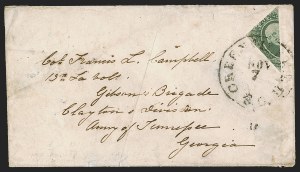 Col Francis L. Campbell
13th La vols.
Gibson's Brigade
Clayton's Division
Army of Tennessee
Georgia
GREEN
NOV
7